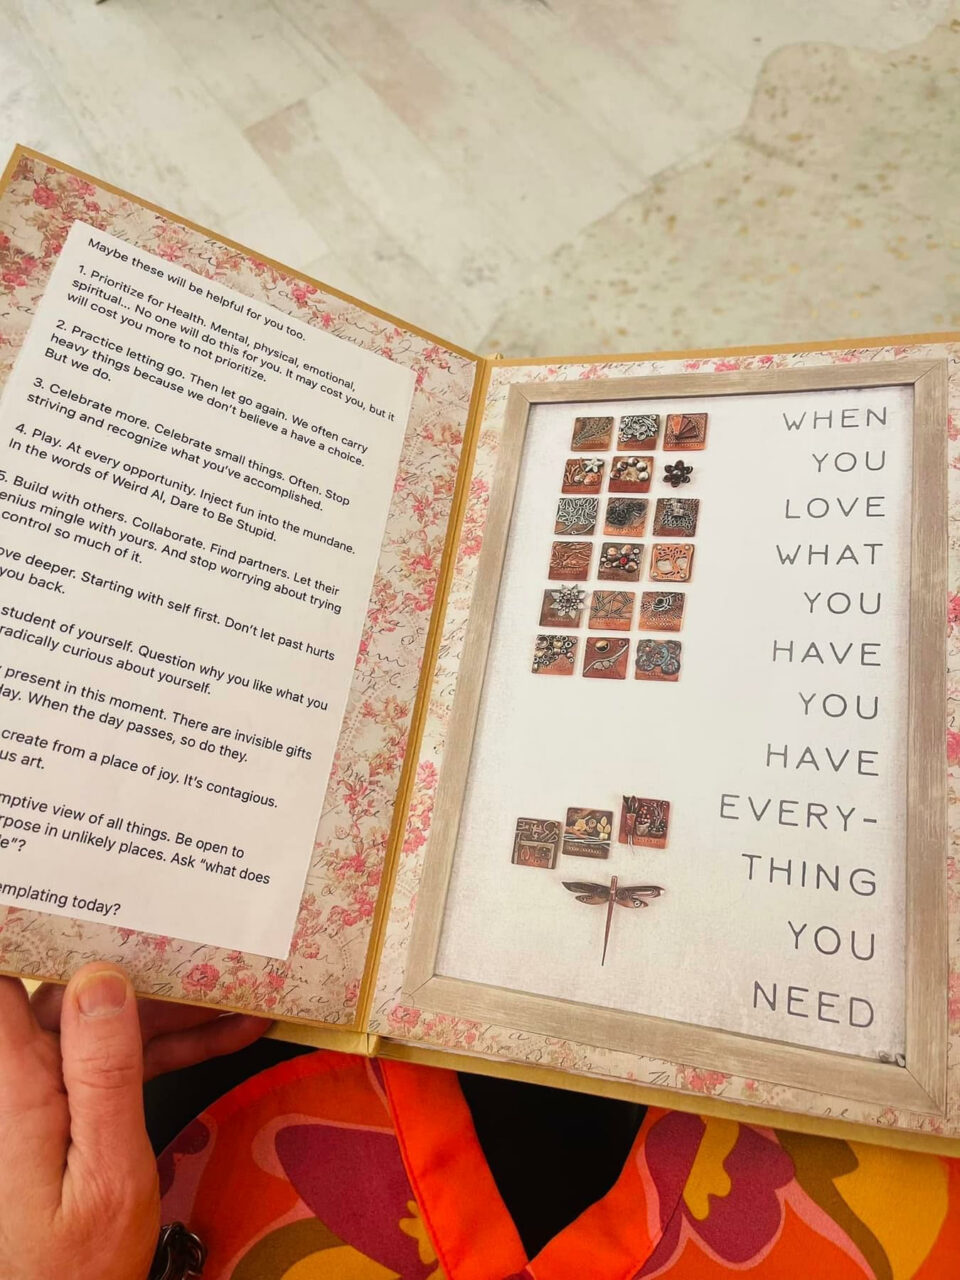 Maybe these will be helpful for you too.
1. Prioritize for Health. Mental, physical, emotional,
spiritual... No one will do this for you. It may cost you, but it
will cost you more to not prioritize.
2. Practice letting go. Then let go again. We often carry
heavy things because we don't believe a have a choice.
But we do.
3. Celebrate more. Celebrate small things. Often. Stop
striving and recognize what you've accomplished.
4. Play. At every opportunity. Inject fun into the mundane.
In the words of Weird Al, Dare to Be Stupid.
5. Build with others. Collaborate. Find partners. Let their
genius mingle with yours. And stop worrying about trying
control so much of it.
deeper. Starting with self first. Don't let past hurts
you back.
student of yourself. Question why you like what you
radically curious about yourself.
present in this moment. There are invisible gifts
day. When the day passes, so do they.
create from a place of joy. It's contagious.
art.
view of all things. Be open to
in unlikely places. Ask "what does
"?
today?
WHEN
YOU
LOVE
WHAT
YOU
HAVE
YOU
HAVE
EVERY-
THING
YOU
NEED